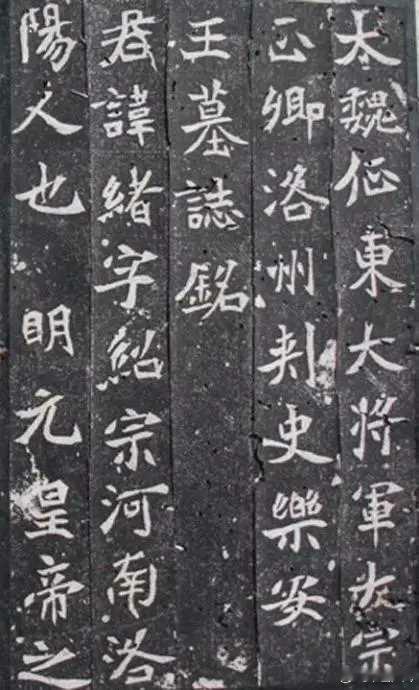 大魏征東大將軍大宗
正卿洛州刾史樂安
王墓誌銘
君諱緒字紹宗河南洛
陽人也 明元皇帝之